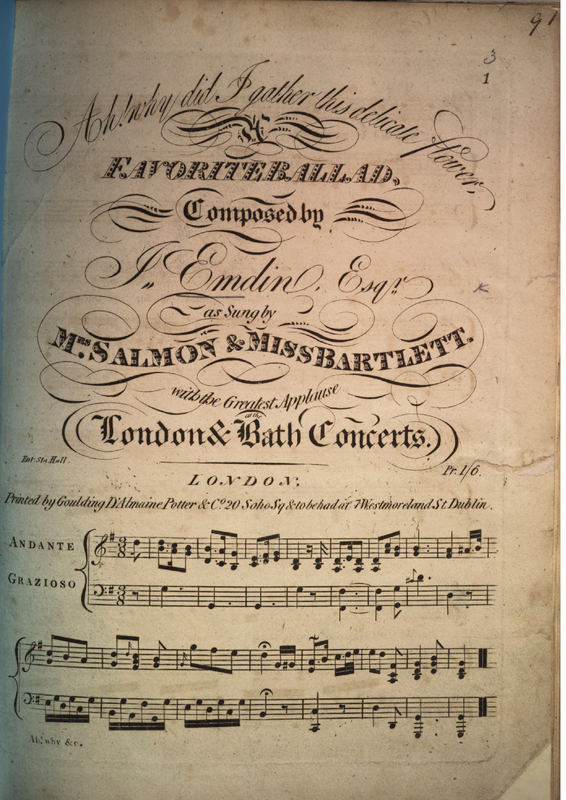 91
3
1
Ah! why did I gather this delicate flower,
A
FAVORITE BALLAD,
Composed by
J,, Emdin, Esqr.
as Sung by
Mrs. SALMON & MISS BARTLETT.
with the Greatest Applause
at the
London & Bath Concerts.
Ent. Sta. Hall.
Pr. 1/6.
LONDON,
Printed by Goulding D'Almaine Potter & Co. 20 Soho Sq. & to be had at 7 Westmoreland St. Dublin.
ANDANTE
GRAZIOSO
Ah! why &c.